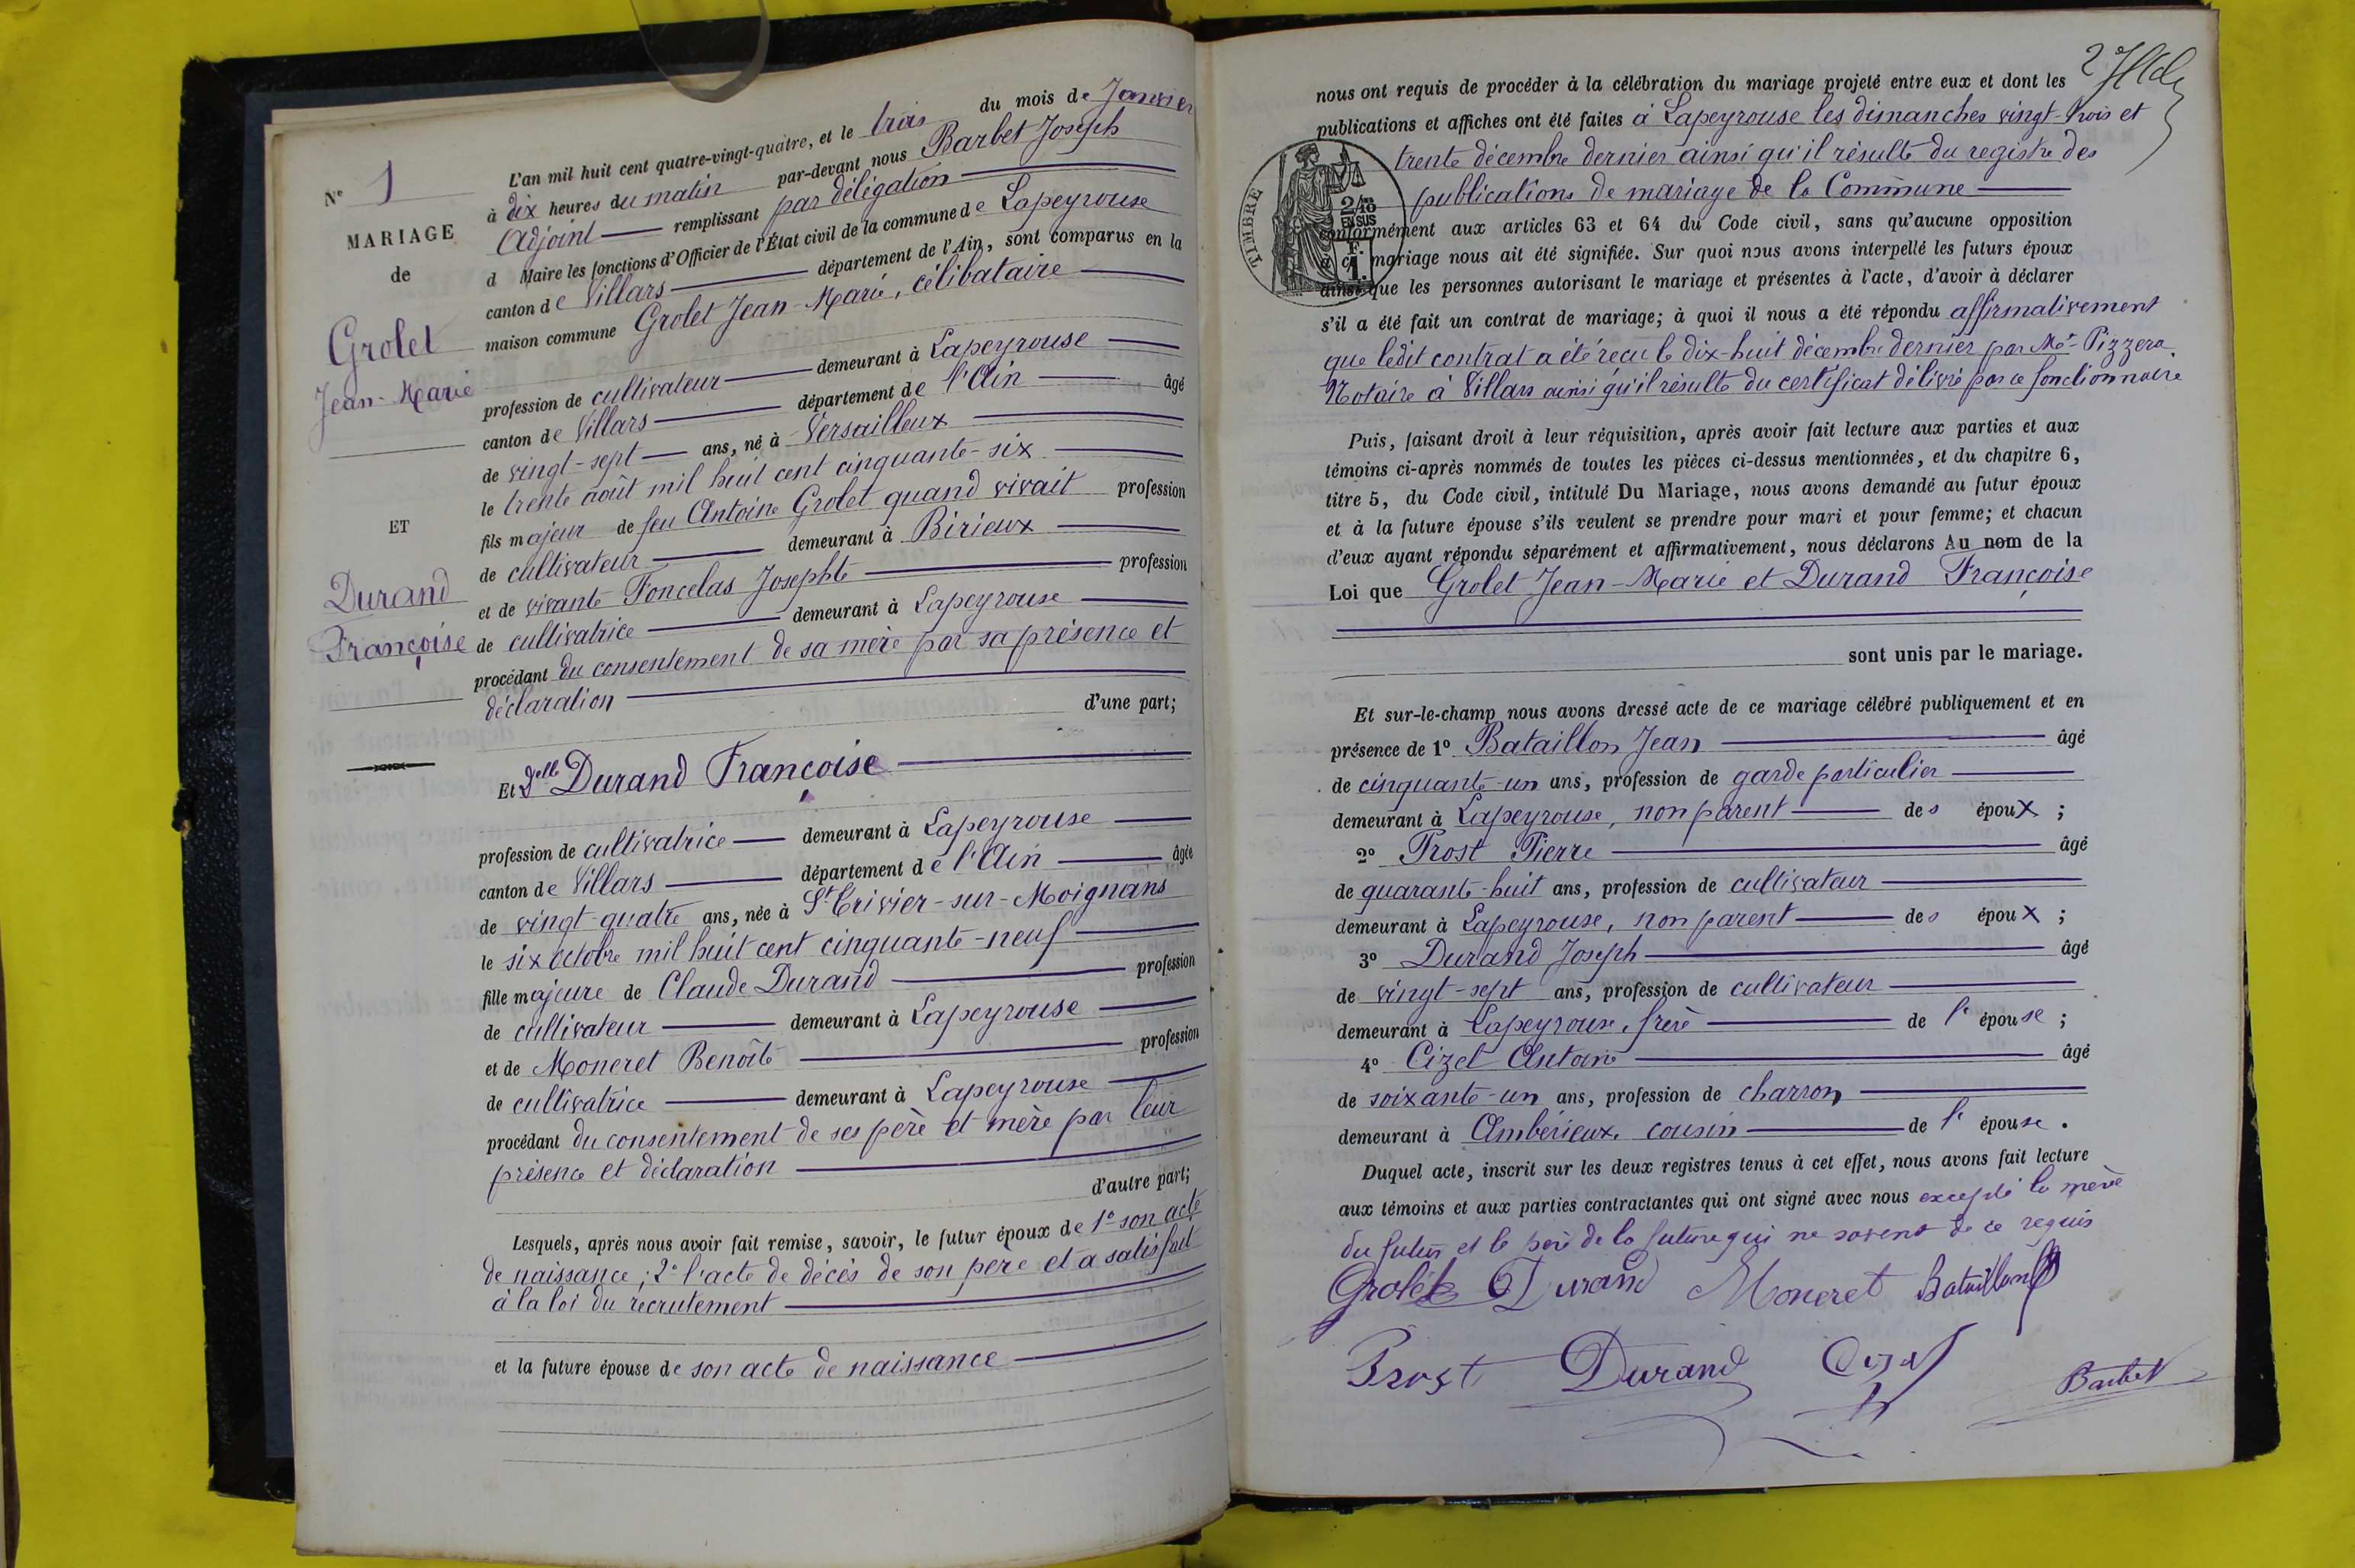 N° 1
MARIAGE
de
Grolet
Jean-Marie
ET
Durand
Françoise
L'an mil huit cent quatre-vingt-quatre, et le trois du mois de Janvier
à dix heures du matin par-devant nous Barbet Joseph
Adjoint remplissant par délégation
d Maire les fonctions d'Officier de l'État civil de la commune de Lapeyrouse
canton de Villars département de l'Ain, sont comparus en la
maison commune Grolet Jean-Marie, célibataire
profession de cultivateur demeurant à Lapeyrouse
canton de Villars département de l'Ain âgé
de vingt-sept ans, né à Versailleux
le trente août mil huit cent cinquante-six
fils majeur de feu Antoine Grolet quand vivait profession
de cultivateur demeurant à Birieux
et de vivante Foncelas Josephte profession
de cultivatrice demeurant à Lapeyrouse
procédant du consentement de sa mère par sa présence et
déclaration
d'une part;
Et Delle Durand Françoise
profession de cultivatrice demeurant à Lapeyrouse
canton de Villars département de l'Ain âgée
de vingt-quatre ans, née à St Trivier-sur-Moignans
le six octobre mil huit cent cinquante-neuf
fille majeure de Claude Durand profession
de cultivateur demeurant à Lapeyrouse
et de Moneret Benoîte profession
de cultivatrice demeurant à Lapeyrouse
procédant du consentement de ses père et mère par leur
présence et déclaration
d'autre part;
Lesquels, après nous avoir fait remise, savoir, le futur époux de 1° son acte
de naissance; 2° l'acte de décès de son père et a satisfait
à la loi du recrutement
et la future épouse de son acte de naissance
2
nous ont requis de procéder à la célébration du mariage projeté entre eux et dont les
publications et affiches ont été faites à Lapeyrouse les dimanches vingt-trois et
trente décembre dernier ainsi qu'il résulte du registre des
publications de mariage de la Commune
TIMBRE
EN SUS
conformément aux articles 63 et 64 du Code civil, sans qu'aucune opposition
mariage nous ait été signifiée. Sur quoi nous avons interpellé les futurs époux
ainsi que les personnes autorisant le mariage et présentes à l'acte, d'avoir à déclarer
s'il a été fait un contrat de mariage; à quoi il nous a été répondu affirmativement
que ledit contrat a été reçu le dix-huit décembre dernier par Me Pizzera
Notaire à Villars ainsi qu'il résulte du certificat délivré par ce fonctionnaire
Puis, faisant droit à leur réquisition, après avoir fait lecture aux parties et aux
témoins ci-après nommés de toutes les pièces ci-dessus mentionnées, et du chapitre 6,
titre 5, du Code civil, intitulé Du Mariage, nous avons demandé au futur époux
et à la future épouse s'ils veulent se prendre pour mari et pour femme; et chacun
d'eux ayant répondu séparément et affirmativement, nous déclarons Au nom de la
Loi que Grolet Jean-Marie et Durand Françoise
sont unis par le mariage.
Et sur-le-champ nous avons dressé acte de ce mariage célébré publiquement et en
présence de 1° Bataillon Jean âgé
de cinquante-un ans, profession de garde particulier
demeurant à Lapeyrouse, non parent des époux ;
2° Prost Pierre âgé
de quarante-huit ans, profession de cultivateur
demeurant à Lapeyrouse, non parent des époux ;
3° Durand Joseph âgé
de vingt-sept ans, profession de cultivateur
demeurant à Lapeyrouse, frère de l'épouse ;
4° Cizet Antoine âgé
de soixante-un ans, profession de charron
demeurant à Ambérieux, cousin de l'épouse.
Duquel acte, inscrit sur les deux registres tenus à cet effet, nous avons fait lecture
aux témoins et aux parties contractantes qui ont signé avec nous excepté la mère
du futur et le père de la future qui ne savent de ce requis
Grolet Durand Moneret Bataillon
Prost Durand Cizet
Barbet